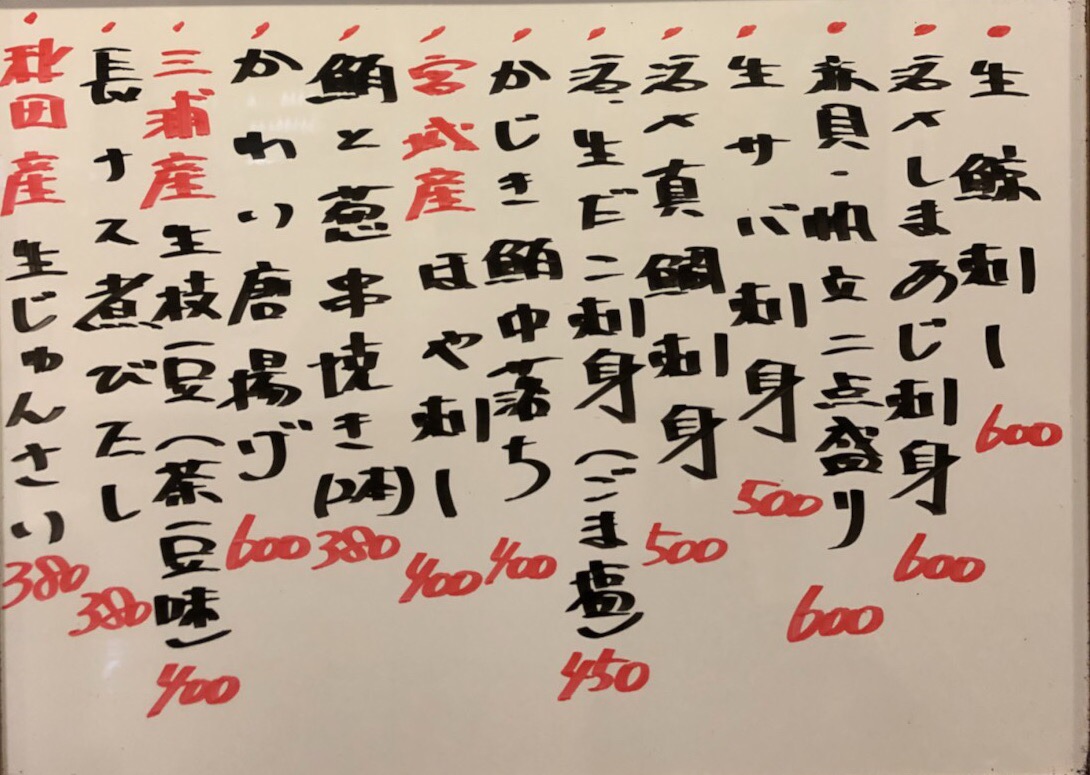 ・生鯨刺し 600
・活〆しまあじ刺身 600
・赤貝・帆立二点盛り 600
・生サバ刺身 500
・活〆真鯛刺身 500
・活、生だこ刺身(ごま塩) 450
・かじき鮪中落ち 400
・宮城産ほや刺し 400
・鮪と葱串焼き(2本) 380
・かわいり唐揚げ 600
・三浦産生枝豆(茶豆味) 400
・長ナス煮びたし 380
・秋田産生じゅんさい 380